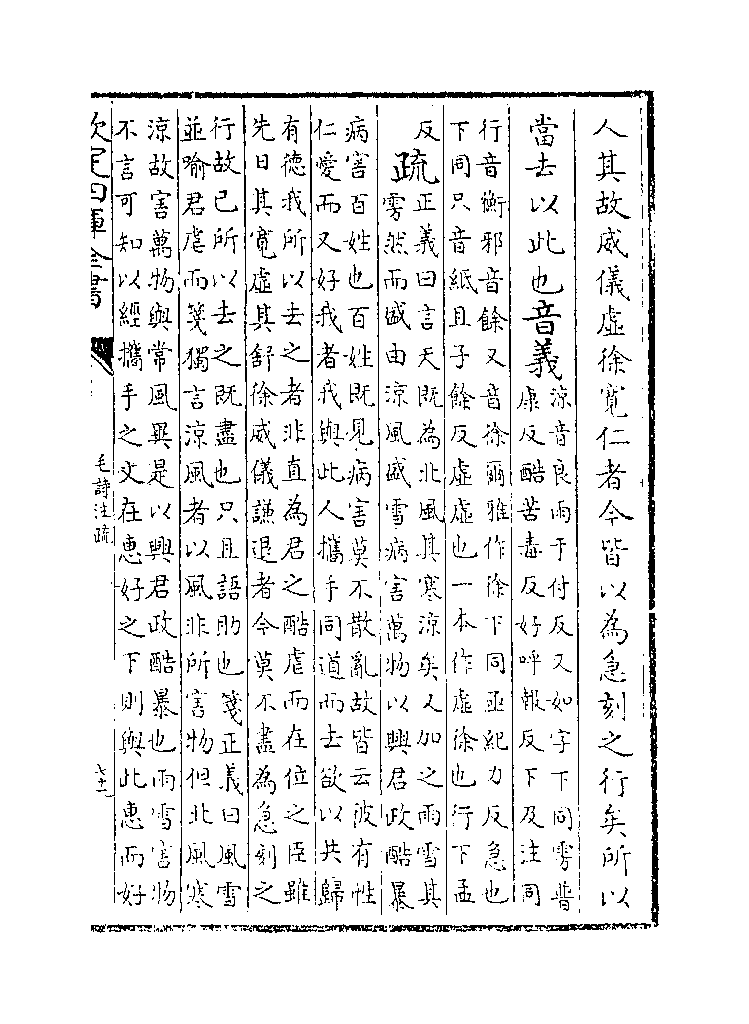 人其故威儀虛徐寬仁者今皆以為急刻之行矣所以
當去以此也音義
涼音良雨于付反又如字下同雱普
康反酷苦毒反好呼報反下及注同
行音衡邪音餘又音徐爾雅作徐下同亟紀力反急也
下同只音紙且子餘反虛虛也一本作虛徐也行下孟
反
疏
正義曰言天既為北風其寒涼矣又加之雨雪其
雱然而盛由涼風盛雪病害萬物以興君政酷暴
病害百姓也百姓既見病害莫不散亂故皆云彼有性
仁愛而又好我者我與此人攜手同道而去欲以共歸
有德我所以去之者非直為君之酷虐而在位之臣雖
先日其寬虛其舒徐威儀謙退者今莫不盡為急刻之
行故已所以去之既盡也只且語助也箋正義曰風雪
並喻君虐而箋獨言涼風者以風非所害物但北風寒
涼故害萬物與常風異是以興君政酷暴也雨雪害物
不言可知以經攜手之文在惠好之下則與此惠而好
欽定四庫全書
毛詩注疏